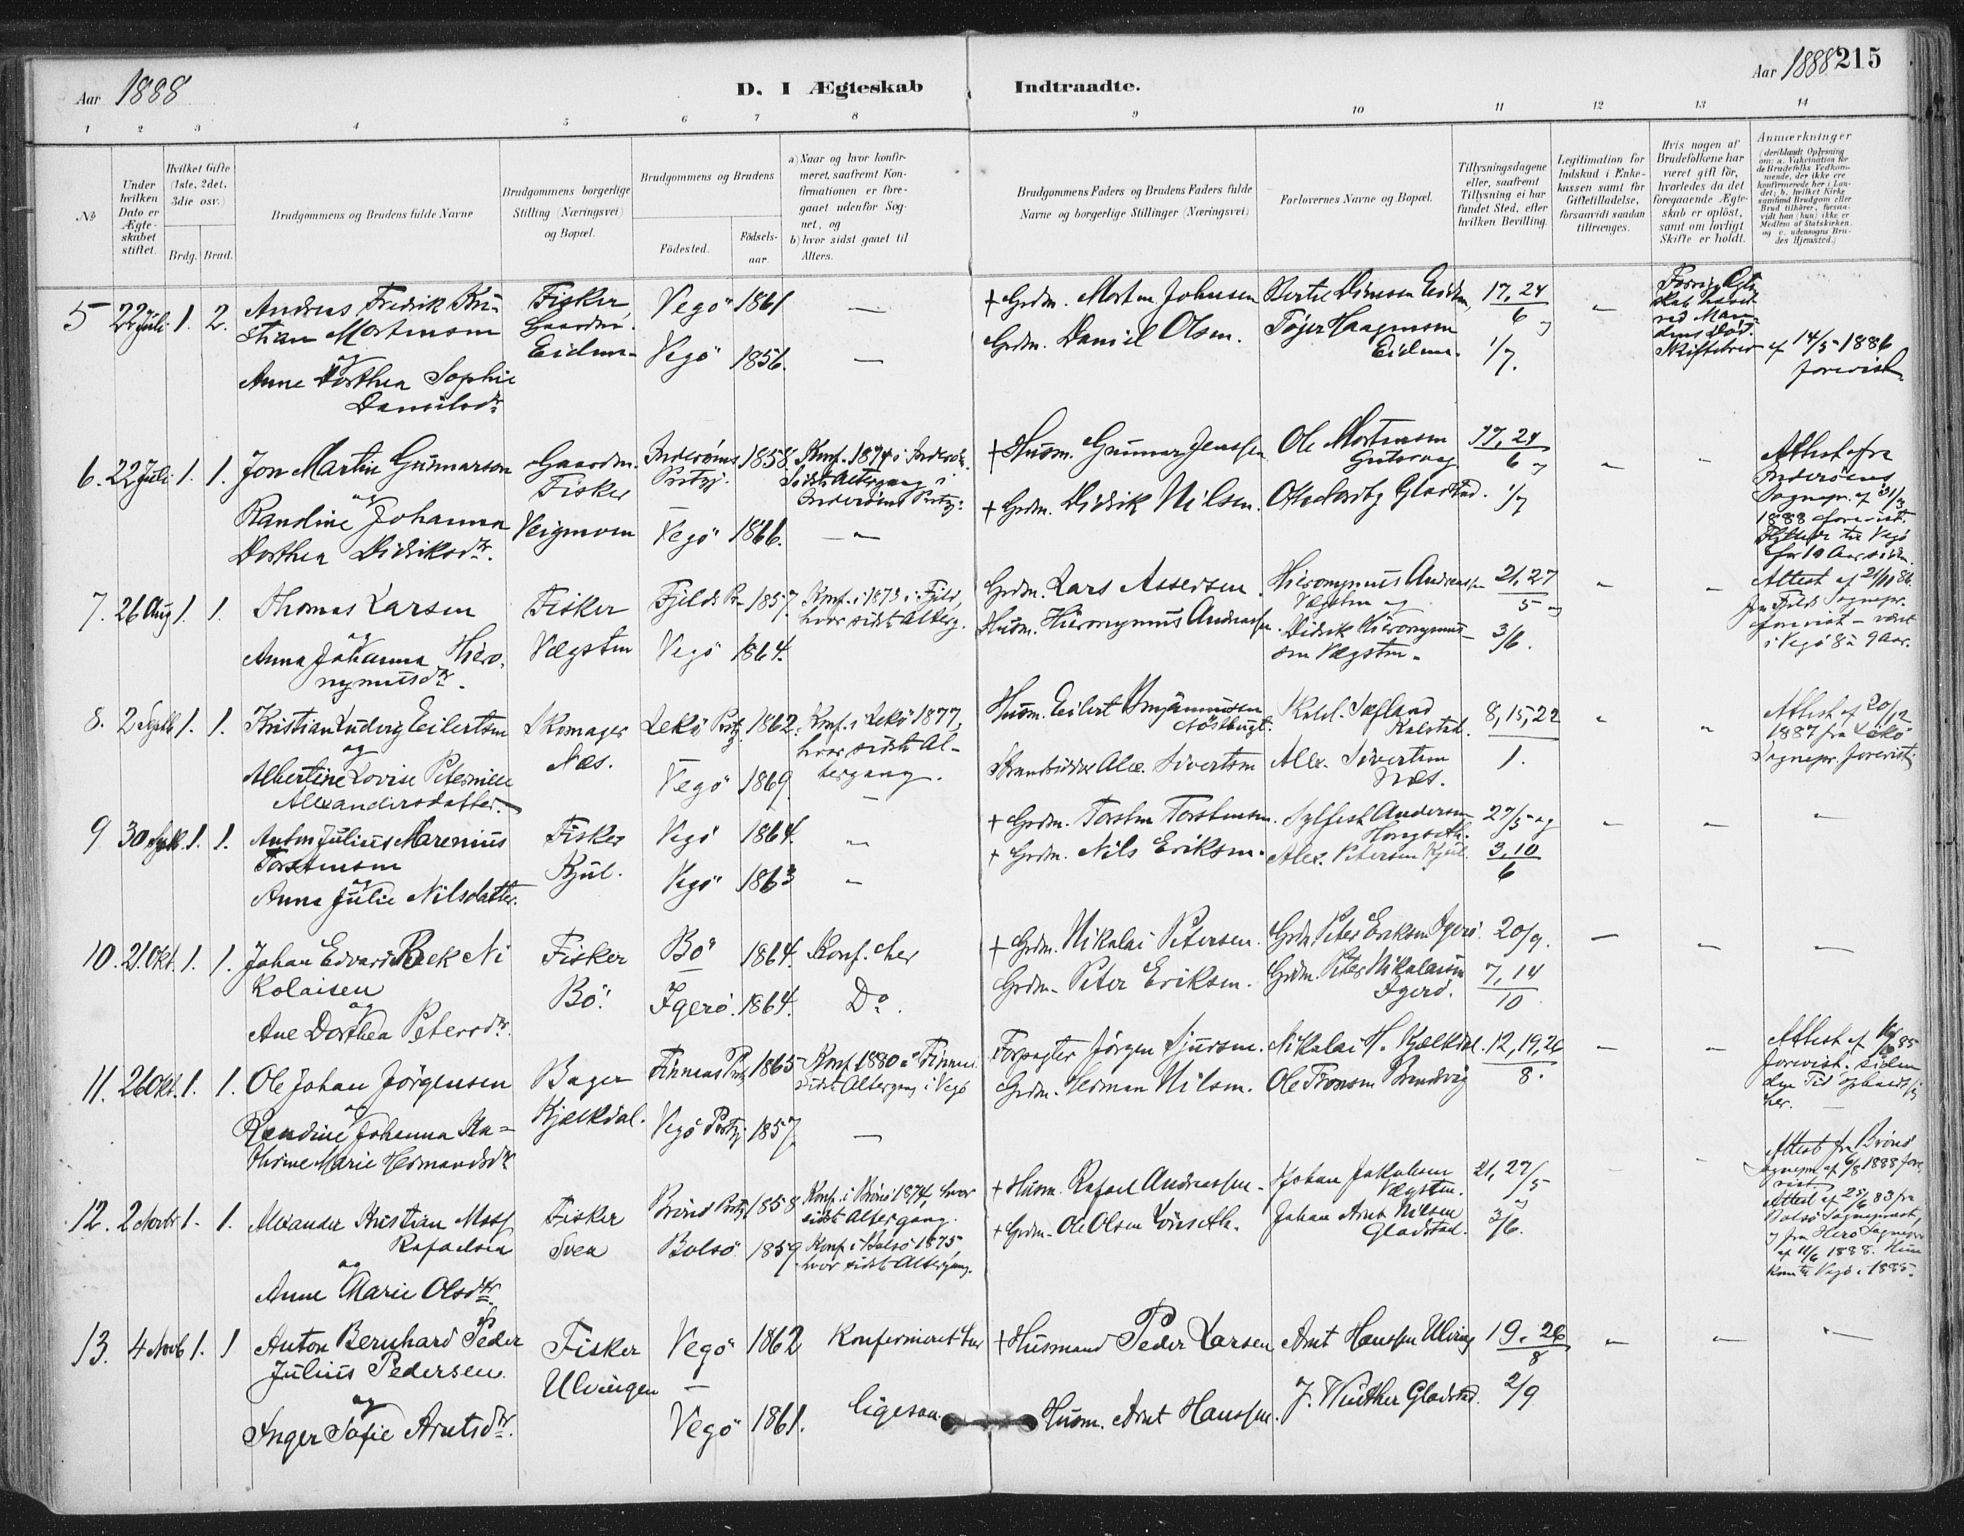 Aar 1888
D. I Ægteskab Indtraadte.
Aar 1888 215
1 2 3 4 5 6 7 8 9 10 11 12 13 14
No
Under hvilken Dato er Ægteskabet stiftet.
Hvilket Gifte (1ste, 2det, 3die osv.)
Brdg. Brud.
Brudgommens og Brudens fulde Navne
Brudgommens borgerlige Stilling (Næringsvei) og Bopæl.
Brudgommens og Brudens
Fødested.
Fødselsaar.
a) Naar og hvor konfirmeret, saafremt Konfirmationen er foregaaet udenfor Sognet, og
b) hvor sidst gaaet til Alters.
Brudgommens Faders og Brudens Faders fulde Navne og borgerlige Stillinger (Næringsvei)
Forlovernes Navne og Bopæl.
Tillysningsdagene eller, saafremt Tillysning ei har fundet Sted, efter hvilken Bevilling.
Legitimation for Indskud i Enkekassen samt for Giftetilladelse, forsaavidt saadan tiltrænges.
Hvis nogen af Brudefolkene har været gift før, hvorledes da det foregaaende Ægteskab er opløst, samt om lovligt Skifte er holdt.
Anmærkninger
(deriblandt Oplysning om: a. Vakcination for de Brudefolks Vedkommende, der ikke ere konfirmerede her i Landet; b. hvilket Kirkesamfund Brudgom eller Brud tilhører, forsaavidt han (hun) ikke er Medlem af Statskirken, og c. udensogns Brudes Hjemsted.)
5 22 Juli 1. 2.
Andreas Fredrik Kristian Mortensen
og
Anne Dorthea Sophie
Danielsdr
Fisker, Gaardm.
Eidem
Vegö 1861 —
Vegö 1856. —
+ Grdm. Morten Johnsen
Grdm. Daniel Olsen.
Bertel Dinesen Eidem,
Töger Haagensen
Eidem.
17, 24/6 og
1/7.
Forrige Ægteskab hævet ved Mandens Død.
Skiftebrev af 14/5 1886
forevist.
6. 22 Juli 1. 1.
Jon Martin Gunnarson
og
Randine Johanna
Dorthea Didriksdr.
Gaardm.
Fisker
Veigmoen
Inderöens Prstgj. 1858.
Vegö 1866.
Konf. 1874 i Inderöen.
Sidste Altergang i
Inderöens Prstgj.
+ Husm. Gunnar Jenssen
+ Grdm. Didrik Nilsen.
Ole Mortensen
Gladstad.
17, 24/6 og
1/7
Attest fra
Inderöens
Sognepr. af 31/3
1888 forevist.
Flyttede til Vegö
for 10 Aar siden.
7. 26 Aug 1. 1.
Thomas Larsen
og
Anna Johanna Hieronymusdr.
Fisker
Vægsten
Fjelds Pr. 1857.
Vegö 1864.
Konf. i 1873 i Fjeld,
hvor sidst Alterg.
Grdm. Lars Assersen
Husm. Hieronymus Andreassen.
Hieronymus Andreassen
Vægsten og
Didrik Hieronymussen Vægsten.
21, 27/5 og
3/6.
Attest af 2/11 86
fra Fjelds Sognepr.
forevist – været
i Vegö 8 à 9 Aar.
8. 2 Septb 1. 1.
Kristian Ludvig Eilertsen
og
Albertine Lovise Peternille
Alexandersdatter.
Skomager
Næs.
Lekö Prstgj. 1862.
Vegö 1869.
Konf. i Lekö 1877,
hvor sidste Altergang.
Husm. Eilert Benjaminsen
Strandsidder Alex. Sivertsen
Kalstad.
Alex. Sivertsen
Næs.
8, 15, 22
1.
Attest af 20/12
1887 fra Lekö
Sognepr. forevist.
9 30 Septb. 1. 1.
Anton Julius Marenius
Torstensen
og
Anna Julie Nilsdatter.
Fisker
Kjul.
Vegö 1864.
Vegö 1863
+ Grdm. Torsten Torstensen
+ Grdm. Nils Eriksen.
Sylfest Andersen
Alex. Petersen Kjul.
27/5 og
3, 10/6
10. 21 Okt. 1. 1.
Johan Edvard Bæk Nikolaisen
og
Ane Dorthea Petersdr.
Fisker
Bö.
Bö 1864.
Igerö. 1864.
Konf. her
Do.
+ Grdm. Nikolai Petersen.
Grdm. Peter Eriksen.
Grdm Peter Eriksen Igerö
Grdm. Peter Nikolaisen
Igerö.
20/9.
7, 14/10
11. 26 Okt. 1. 1.
Ole Johan Jörgensen
og
Randine Johanna Kathrine Marie Hermandsdr
Bager
Kjælkdal.
Finneas Prstgj 1865
Vegö Prstgj 1857
Konf. 1880 i Finneas.
sidst Altergang i Vegö
—
Forpagter Jörgen Sjursen.
Grdm. Herman Nilsen.
Nikolai H. Kjælkdal.
Ole Tronsen Brandsvig
12, 19, 26
8.
Attest af 85
forevist. Siden
den Tid opholdt sig
her.
12. 2 Novbr 1. 1.
Alexander Kristian Moss
Rafaelsen
og
Anne Marie Olsdtr.
Fisker
Svea
Brönö Prstgj 1858
Bolsö 1859
Konf. i Brönö 1874, hvor
sidst Altergang.
Konf. i Bolsö 1875,
hvor sidst Altergang.
+ Husm. Rafael Andreassen
+ Grdm. Ole Olsen Lönseth.
Johan Jakobsen
Vægsten.
Johan Arnt Nilsen
Gladstad.
21, 27/5
og
3/6.
Attest fra Brönö
Sognepr. af 6/8 1888 forevist.
Attest af 25/6 83 fra
Bolsö Sognepræst,
og fra Herö Sognepr
af 11/6 1888. Hun
kom til Vegö i 1885.
13. 4 Novb 1. 1
Anton Bernhard Peder
Julius Pedersen.
og
Inger Sofie Arntsdr.
Fisker
Ulvingen
Vegö 1862
Vegö 1861.
Konfirmeret her
ligesaa.
+ Husmand Peder Larsen
Husm. Arnt Hanssen.
Arnt Hanssen Ulving
J. Winther Gladstad.
19. 26/8
2/9